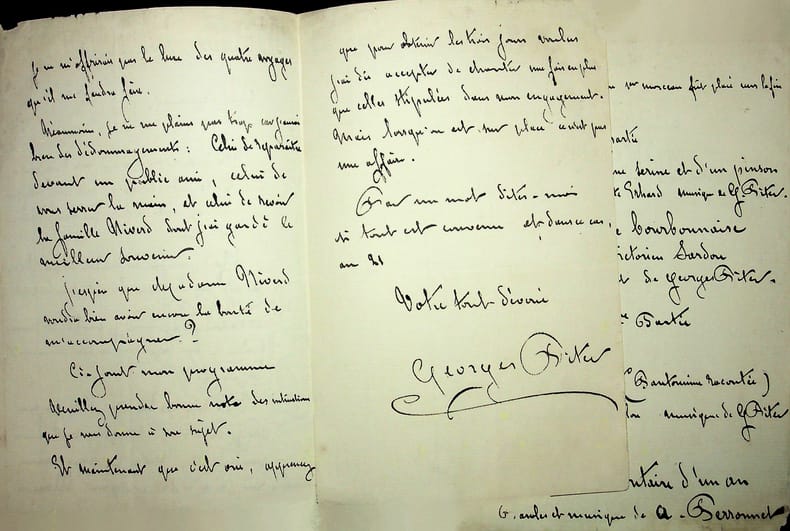 Je ne m'offrirais pas le luxe des quatre voyages
qu'il me faudra faire.
Néanmoins, je ne me plains pas trop car j'aurai
bien des dédommagements : Celui de reparaître
devant un public ami, celui de
vous serrer la main, et celui de revoir
la famille Niverd dont j'ai gardé le
meilleur souvenir.
J'espère que Madame Niverd
voudra bien avoir encore la bonté de
m'accompagner ?
Ci-joint mon programme
Veuillez prendre bonne note des indications
que je vous donne à son sujet.
Et maintenant que c'est oui, apprenez
que pour obtenir les trois jours voulus
j'ai dû accepter de chanter une fois en plus
que celles stipulées dans mon engagement.
Mais lorsqu'on est sur place ce n'est pas
une affaire.
Par un mot dites-moi
si tout est convenu et dans ce cas,
au 21
Votre tout dévoué
Georges Piter
morceau fût placé vers la fin
partie
serine et d'un pinson
musique de G. Piter.
Bourbonnaise
Victorien Sardou
de Georges Piter.
Partie
(Pantomime racontée)
musique de G Piter
ntaire d'un an
Paroles et musique de A. Perronnet